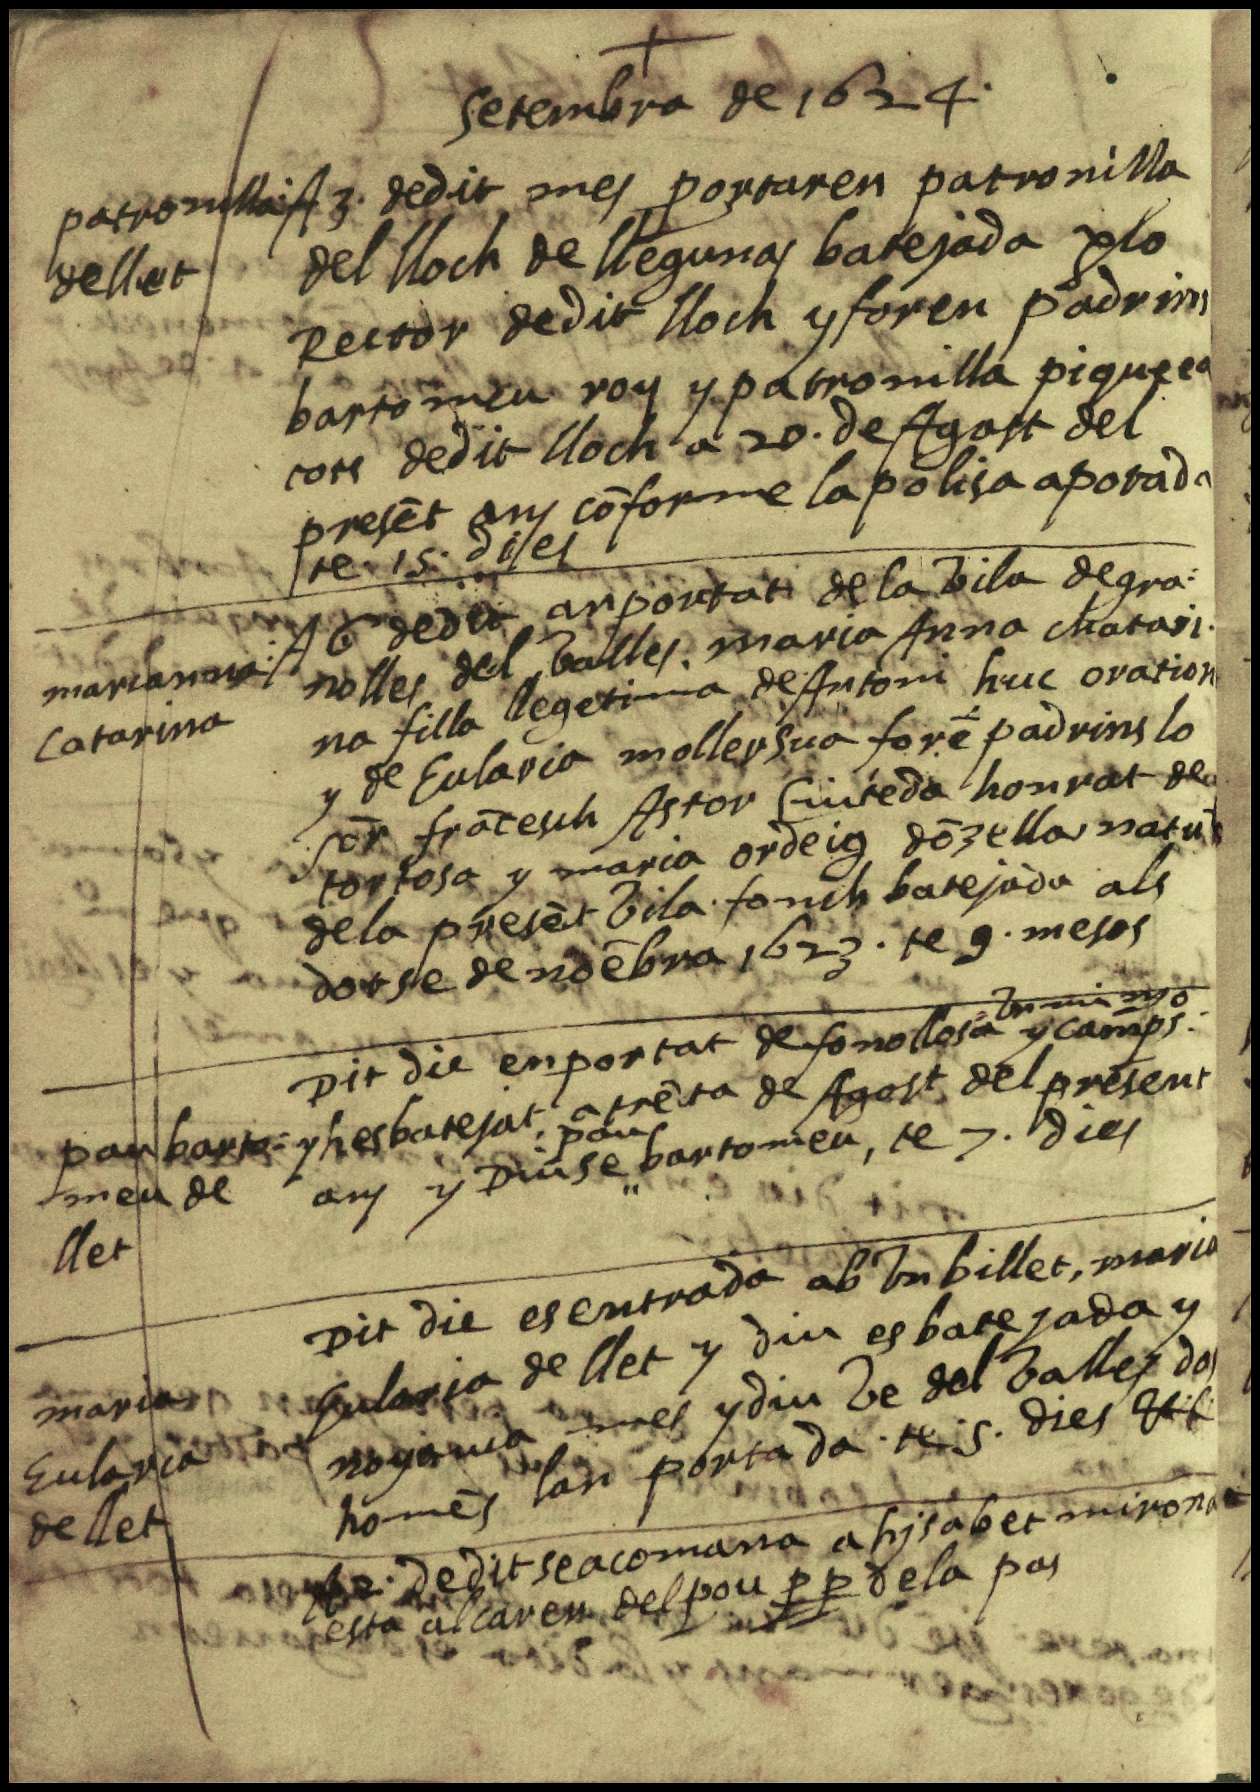 Setembra de 1624.
patronilla
dellet
A 3. dedit mes portaren patronilla
del lloch de llegunas batejada plo
Rector dedit lloch y foren padrins
bartomeu roy y patronilla
dedit lloch a 20. de Agost del
presẽt any cõforme la polisa aportada
te. 15. dies
marianna
Catarina
A 6 dedit anportat de la Vila degra:
nolles del Valles. maria Anna chatari.
na filla llegetima de Antoni huc
y de Eularia mollersua forẽ padrins lo
Sõr frãcesch Astor Ciuteda honrat de
tortosa y maria ordeig dõzella
dela presẽt Vila. fonch batejada als
dotse de noẽbra 1623. te 9. mesos
pau barto:
meu de
llet
Dit die enportat de fonollosa Vn minyo
y camps.
y hes batejat, atrẽta de Agost del present
any y Diuse pau bartomeu, te 7. dies
maria
Eularia
de llet
Dit die es entrada ab Vn billet, maria
Eularia de llet y diu es batejada y
mes y diu Ve del Valles dos
homẽs lan portada. te 15. dies
dedit se acomana a hysabet mirona
esta al carer del pou p p dela pas